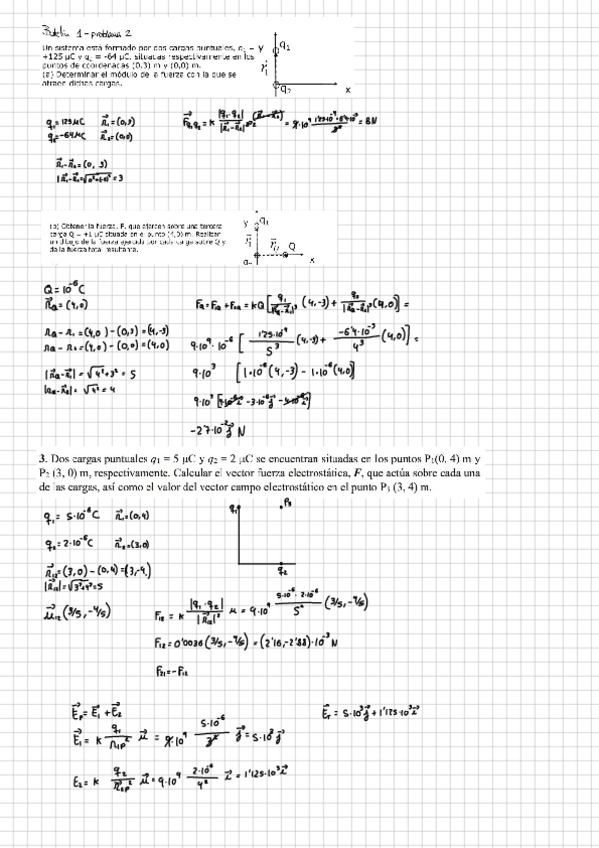 Boletín 1 - problema 2
Un sistema está formado por dos cargas puntuales, q₁ =
+125 μC y q₂ = -64 μC, situadas respectivamente en los
puntos de coordenadas (0,3) m y (0,0) m.
(a) Determinar el módulo de la fuerza con la que se
atraen dichas cargas.
y q₁
q₂
x
q₁ = 125 μC r₁ = (0,3)
q₂ = -64 μC r₂ = (0,0)
= 8 N
r₁ - r₂ = (0, 3)
= 3
(b) Obtener la fuerza, F, que ejercen sobre una tercera
carga Q = +1 μC situada en el punto (4,0) m. Realizar
un dibujo de la fuerza ejercida por cada carga sobre Q y
de la fuerza total resultante.
y q₁
Q
x
Q = 10⁻⁶ C
r_Q = (4,0)
r_Q - r₁ = (4,0) - (0,3) = (4,-3)
r_Q - r₂ = (4,0) - (0,0) = (4,0)
|r_Q - r₁| = √4²+3² = 5
|r_Q - r₂| = √4² = 4
9·10³ [1·10⁻⁶ (4,-3) - 1·10⁻⁶ (4,0)]
-27·10⁻³ j N
3. Dos cargas puntuales q₁ = 5 μC y q₂ = 2 μC se encuentran situadas en los puntos P₁(0, 4) m y
P₂ (3, 0) m, respectivamente. Calcular el vector fuerza electrostática, F, que actúa sobre cada una
de las cargas, así como el valor del vector campo electrostático en el punto P₃ (3, 4) m.
q₁
P₃
q₂
q₁ = 5·10⁻⁶ C r₁ = (0,4)
q₂ = 2·10⁻⁶ C r₂ = (3,0)
r₁₂ = (3,0) - (0,4) = (3,-4)
|r₁₂| = √3²+4² = 5
μ₁₂ (3/5, -4/5)
F₁₂ = k |q₁·q₂| / |r₁₂|² μ = 9·10⁹ 5·10⁻⁶ · 2·10⁻⁶ / 5² (3/5, -4/5)
F₁₂ = 0'0036 (3/5, -4/5) = (2'16, -2'88)·10⁻³ N
F₂₁ = -F₁₂
E_p = E₁ + E₂
E_T = 5·10³ j + 1'125·10³ i
E₁ = k q₁ / r₁p² μ = 9·10⁹ 5·10⁻⁶ / 3² j = 5·10³ j
E₂ = k q₂ / r₂p² μ = 9·10⁹ 2·10⁻⁶ / 4² i = 1'125·10³ i